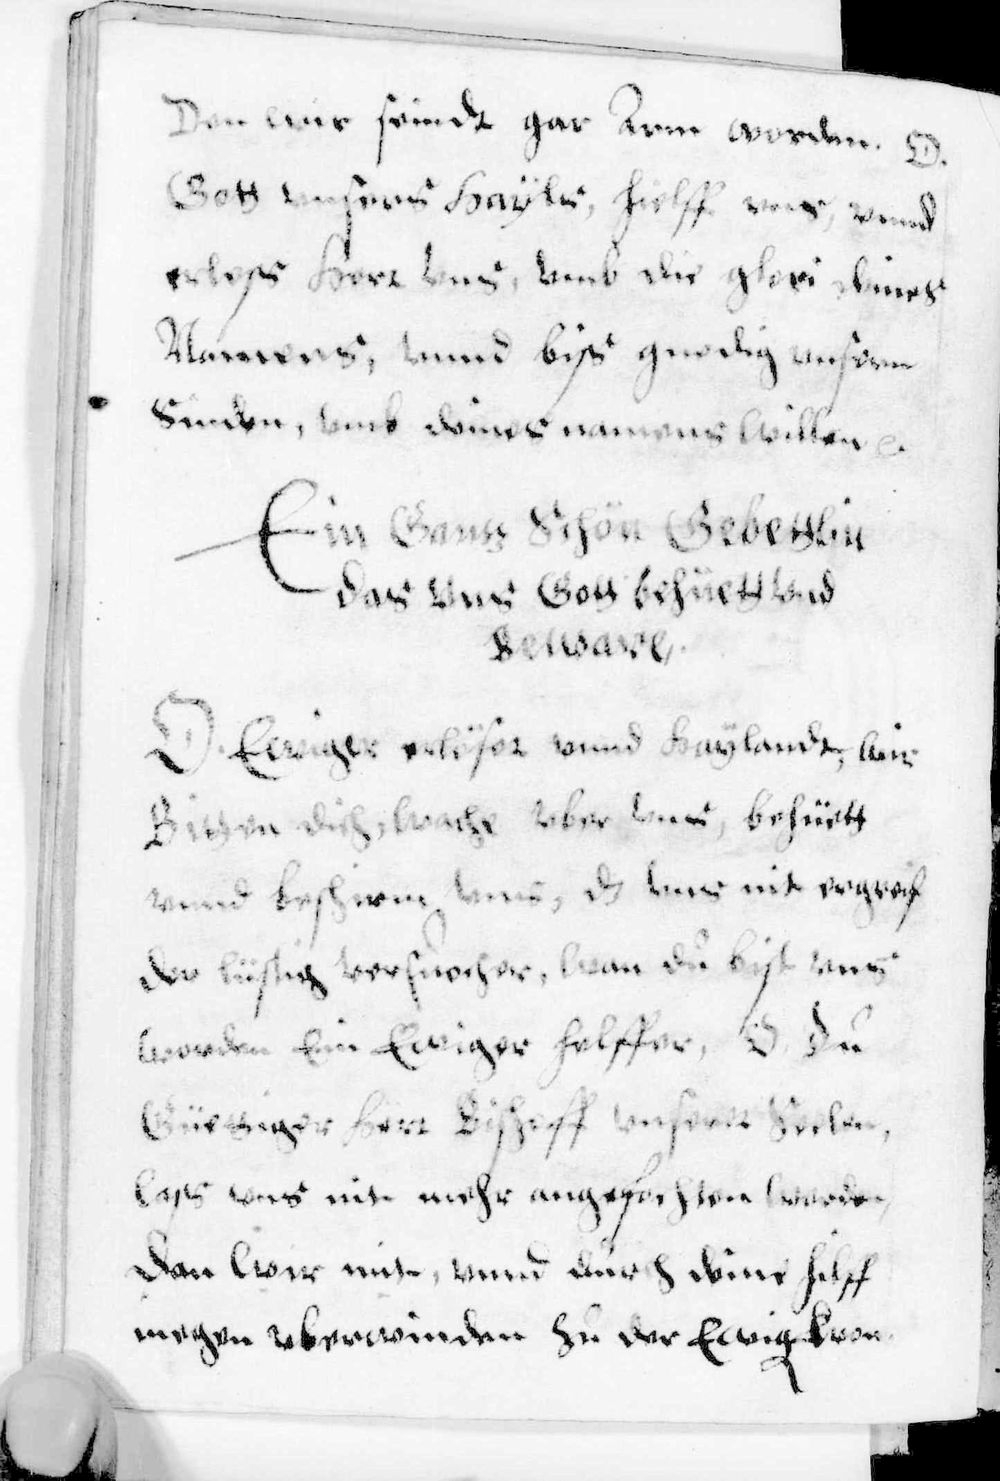 Den wir seindt gar Arm worden. O.
Gott unsers Hayls, hielff uns, vnnd
erlöss Herr Vns, Vmb die glori deines
Namens, Vnnd biss gnedig unsern
Sünden, Vmb deines namens Willen
Ein Gantz Schön Gebettlin
das Vns Gott behüett Vnd
Beware,
O. Ewiger erlöser vnnd Haylandt, Wir
Bitten dich, Wache vber Vns, behüett
vnnd beschirm Vns, dz Vns nit ergreif
der listig Versuocher, Wan du bist vns
Worden Ein Ewiger helffer, O. Du
Güettiger Herr Bischoff Vnserer Seelen,
lass vns nit mehr angefochten Werden,
Dan Wir mit, vnnd durch deine hilff
megen vberwinden zu der Ewig Kron.